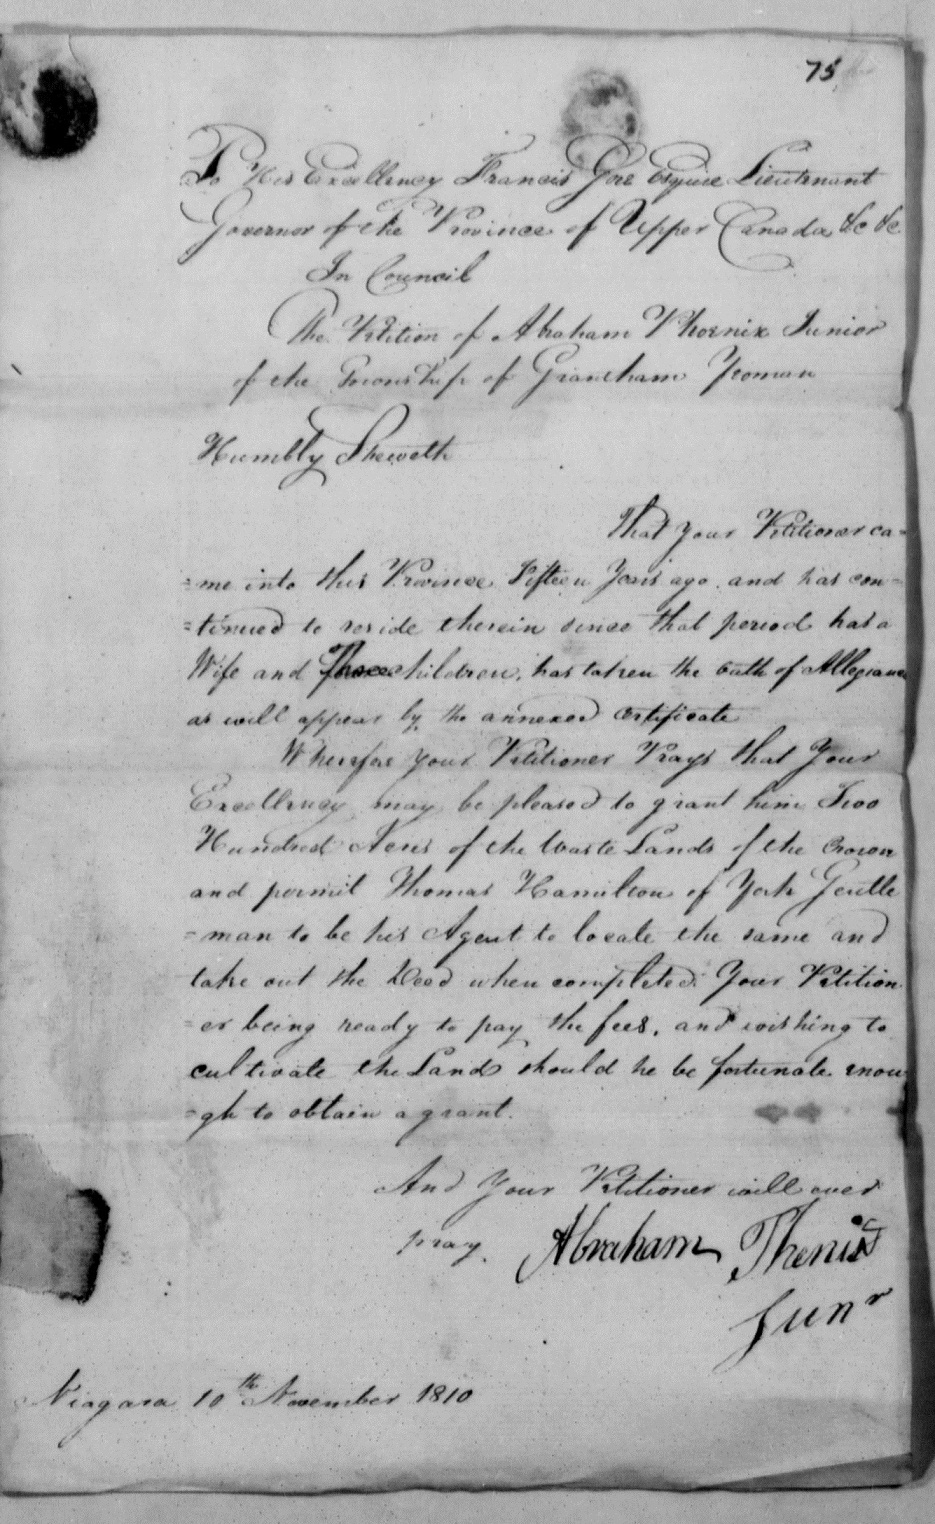 75
To His Excellency Francis Gore Esquire Lieutenant
Governor of the Province of Upper Canada &c &c
In Council
The Petition of Abraham Phoenix Junior
of the Township of Grantham Yeoman
Humbly Sheweth
That your Petitioner ca=
=me into this Province Fifteen Years ago and has con=
=tinued to reside therein since that period has a
Wife and Three children, has taken the oath of Allegiance
as will appear by the annexed certificate
Wherefore your Petitioner Prays that Your
Excellency may be pleased to grant him Two
Hundred Acres of the Waste Lands of the Crown
and permit Thomas Hamilton of York Gentle
=man to be his Agent to locate the same and
take out the Deed when completed. Your Petition
=er being ready to pay the fees, and wishing to
cultivate the Land should he be fortunate enou
=gh to obtain a grant.
And Your Petitioner will ever
pray. Abraham Phenix
Junr
Niagara 10th November 1810